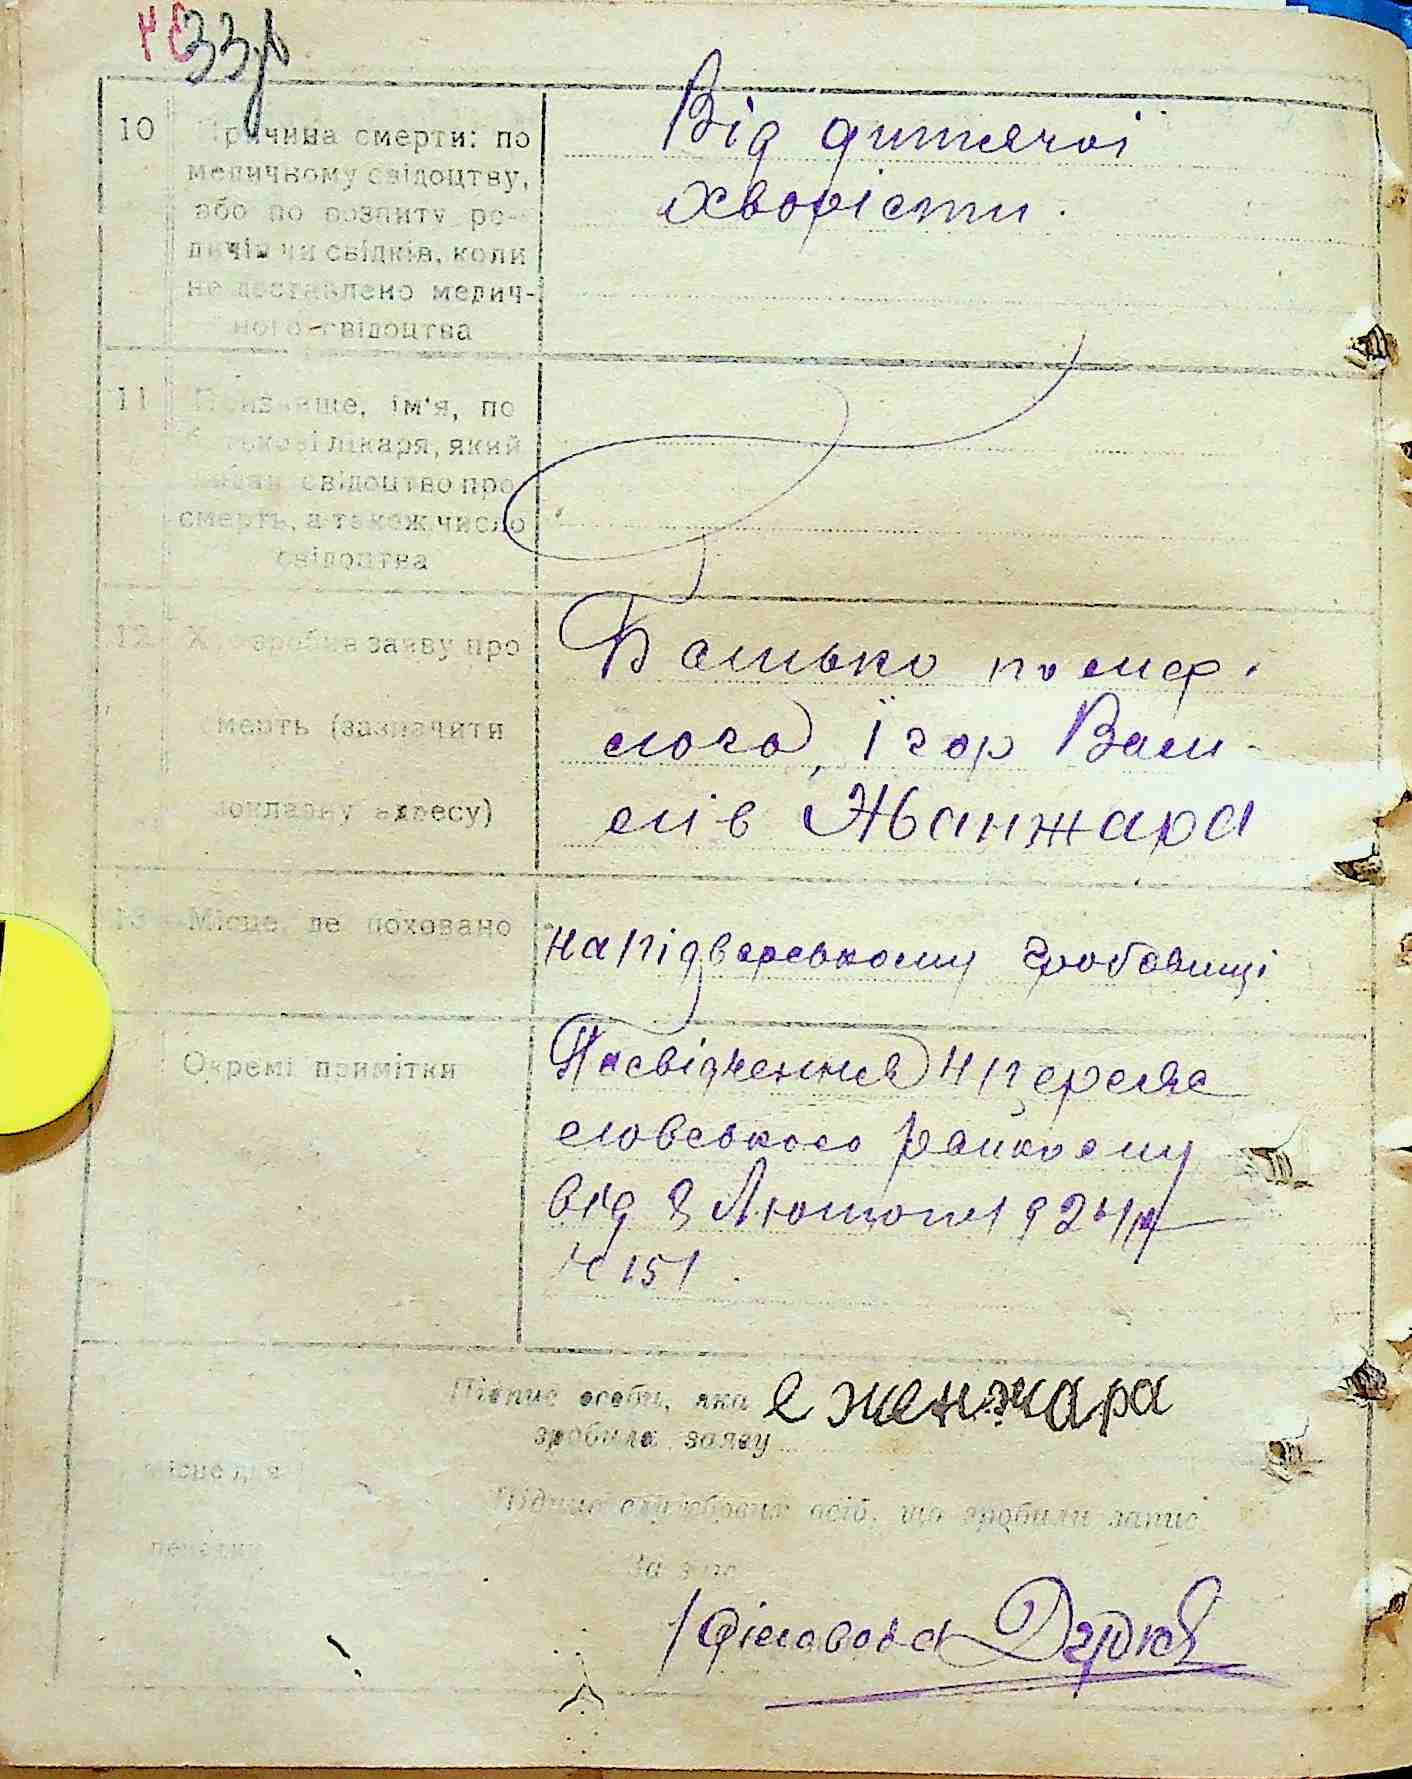 33
10
Причина смерти: по
медичному свідоцтву,
або по розпиту ро-
дичів чи свідків, коли
не доставлено медич-
ного свідоцтва
Від дитячої
хворісти.
11
Призвище, ім'я, по
батькові лікаря, який
видав свідоцтво про
смерть, а також число
свідоцтва
12
Хто зробив заяву про
смерть (зазначити
докладну адресу)
Батько помер
лого, Ігор Васи-
лів Жванжара
13
Місце, де поховано
на Підварському гробовищі
Окремі примітки
Посвідчення Переяс
лавського
від 8 Лютого 1924 р
№ 151.
Підпис особи, яка
зробила заяву
Є Женжара
Місце для
печатки
Підпис службових осіб, що зробили запис